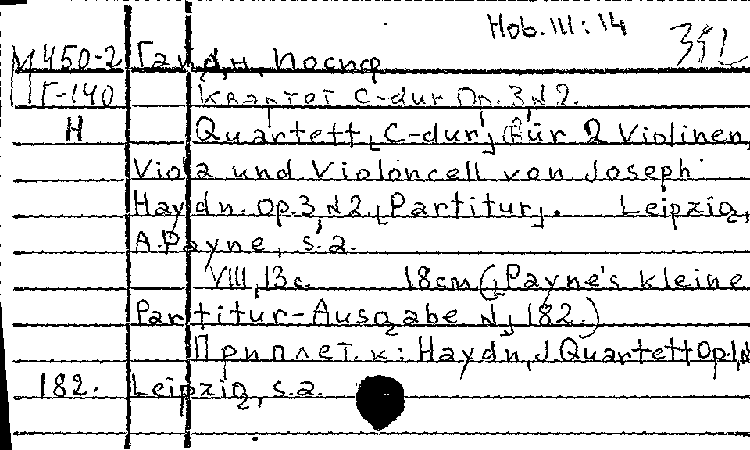 Hob. III : 14
М 450-2 Гайдн, Иосиф
Г-140 Квартет C-dur Op. 3 N 2.
H Quartett [C-dur] (für 2 Violinen,
Viola und Violoncell von Joseph
Haydn. Op. 3, N 2 [Partitur]. Leipzig,
A. Payne, s.a.
VIII, 13 с. 18 см ([Payne's kleine
Partitur-Ausgabe N] 182.)
Приплет. к: Haydn, J. Quartett Op. 1, N
182. Leipzig, s.a.